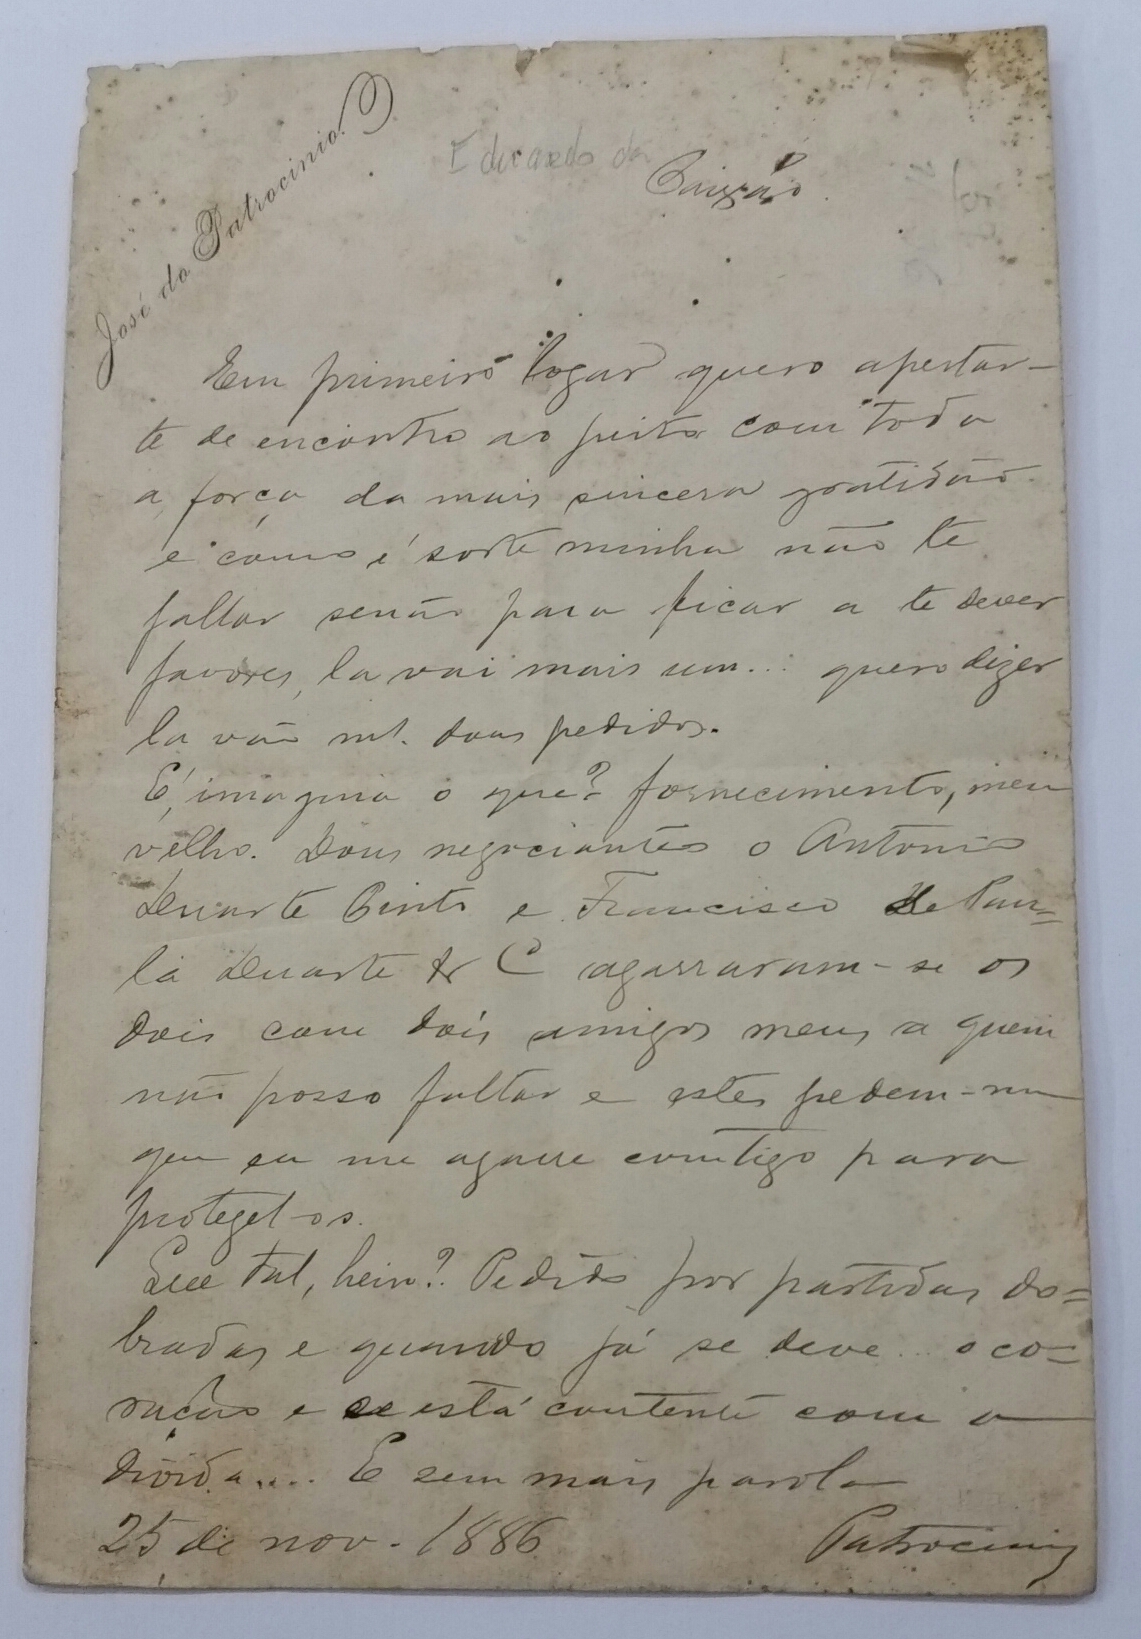 José do Patrocinio.
Eduardo da
Paixão.
Em primeiro logar quero apertar-
te de encontro ao peito com toda
a força da mais sincera gratidão
e como é sorte minha não te
fallar senão para ficar a te dever
favores, la vai mais um... quero dizer
la vão dous pedidos.
E, imagina o que? fornecimento, meu
velho. Dous negociantes o Antonio
Duarte Pinto e Francisco de Pau=
la Duarte & C agarraram-se os
dois com dois amigos meus a quem
não posso faltar e estes pedem-me
que eu me agarre comtigo para
protegel-os.
Que tal, hein? Pedido por partidas do=
bradas e quando já se deve... o co=
ração e se está contente com a
divida.... E sem mais parola
25 de nov. 1886 Patrocinio